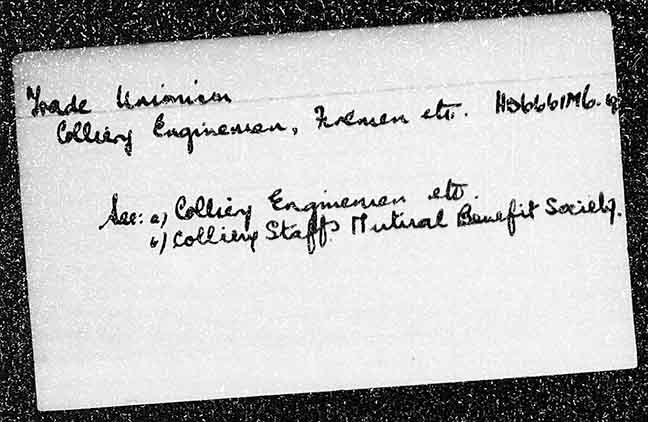 Trade Unionism
Colliery Enginemen, Firemen etc. HD6661M6.
See: a) Colliery Enginemen etc
b) Colliery Staffs Mutual Benefit Society.